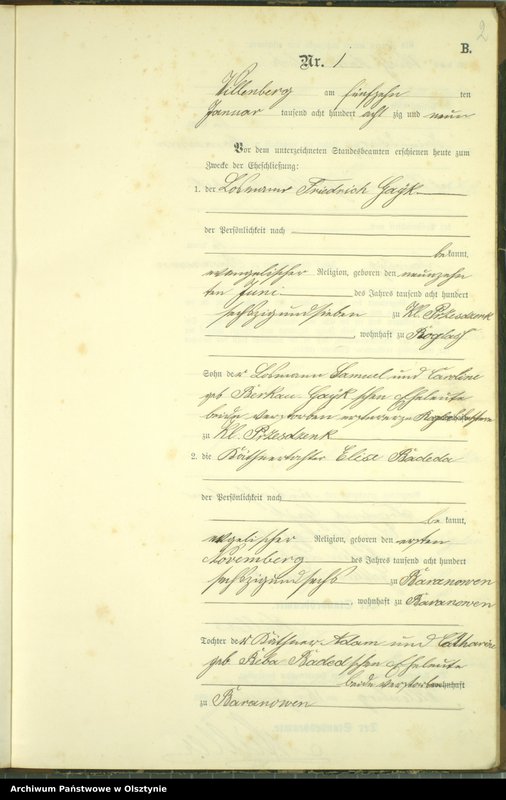 2
B.
Nr. 1
Willenberg am fünfzehn ten
Januar tausend acht hundert acht zig und neun
Vor dem unterzeichneten Standesbeamten erschienen heute zum
Zwecke der Eheschließung:
1. der Losmann Friedrich Gayk
der Persönlichkeit nach
be kannt,
evangelischer Religion, geboren den neunzehn
ten Juni des Jahres tausend acht hundert
sechszigundsieben zu Kl. Przesdzenk
, wohnhaft zu Roglack
Sohn der Losmann Samuel und Caroline
geb. Berkau Gayk'schen Eheleute
beide verstorben ersterer zu
zu Kl. Przesdzenk
2. die Käthnertochter Elise Badeda
der Persönlichkeit nach
be kannt,
evgelischer Religion, geboren den ersten
November des Jahres tausend acht hundert
sechszigundsechs zu Baranowen
, wohnhaft zu Baranowen
Tochter der Käthner Adam und Catharine
geb. Beba Baded'schen Eheleute
beide verstorben wohnhaft
zu Baranowen
Archiwum Państwowe w Olsztynie